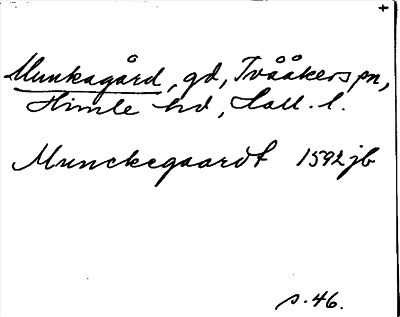 +
Munkagård, gd, Tvååkers pn,
Himle hd, Hall. l.
Munckegaardt 1592 jb
s. 46.